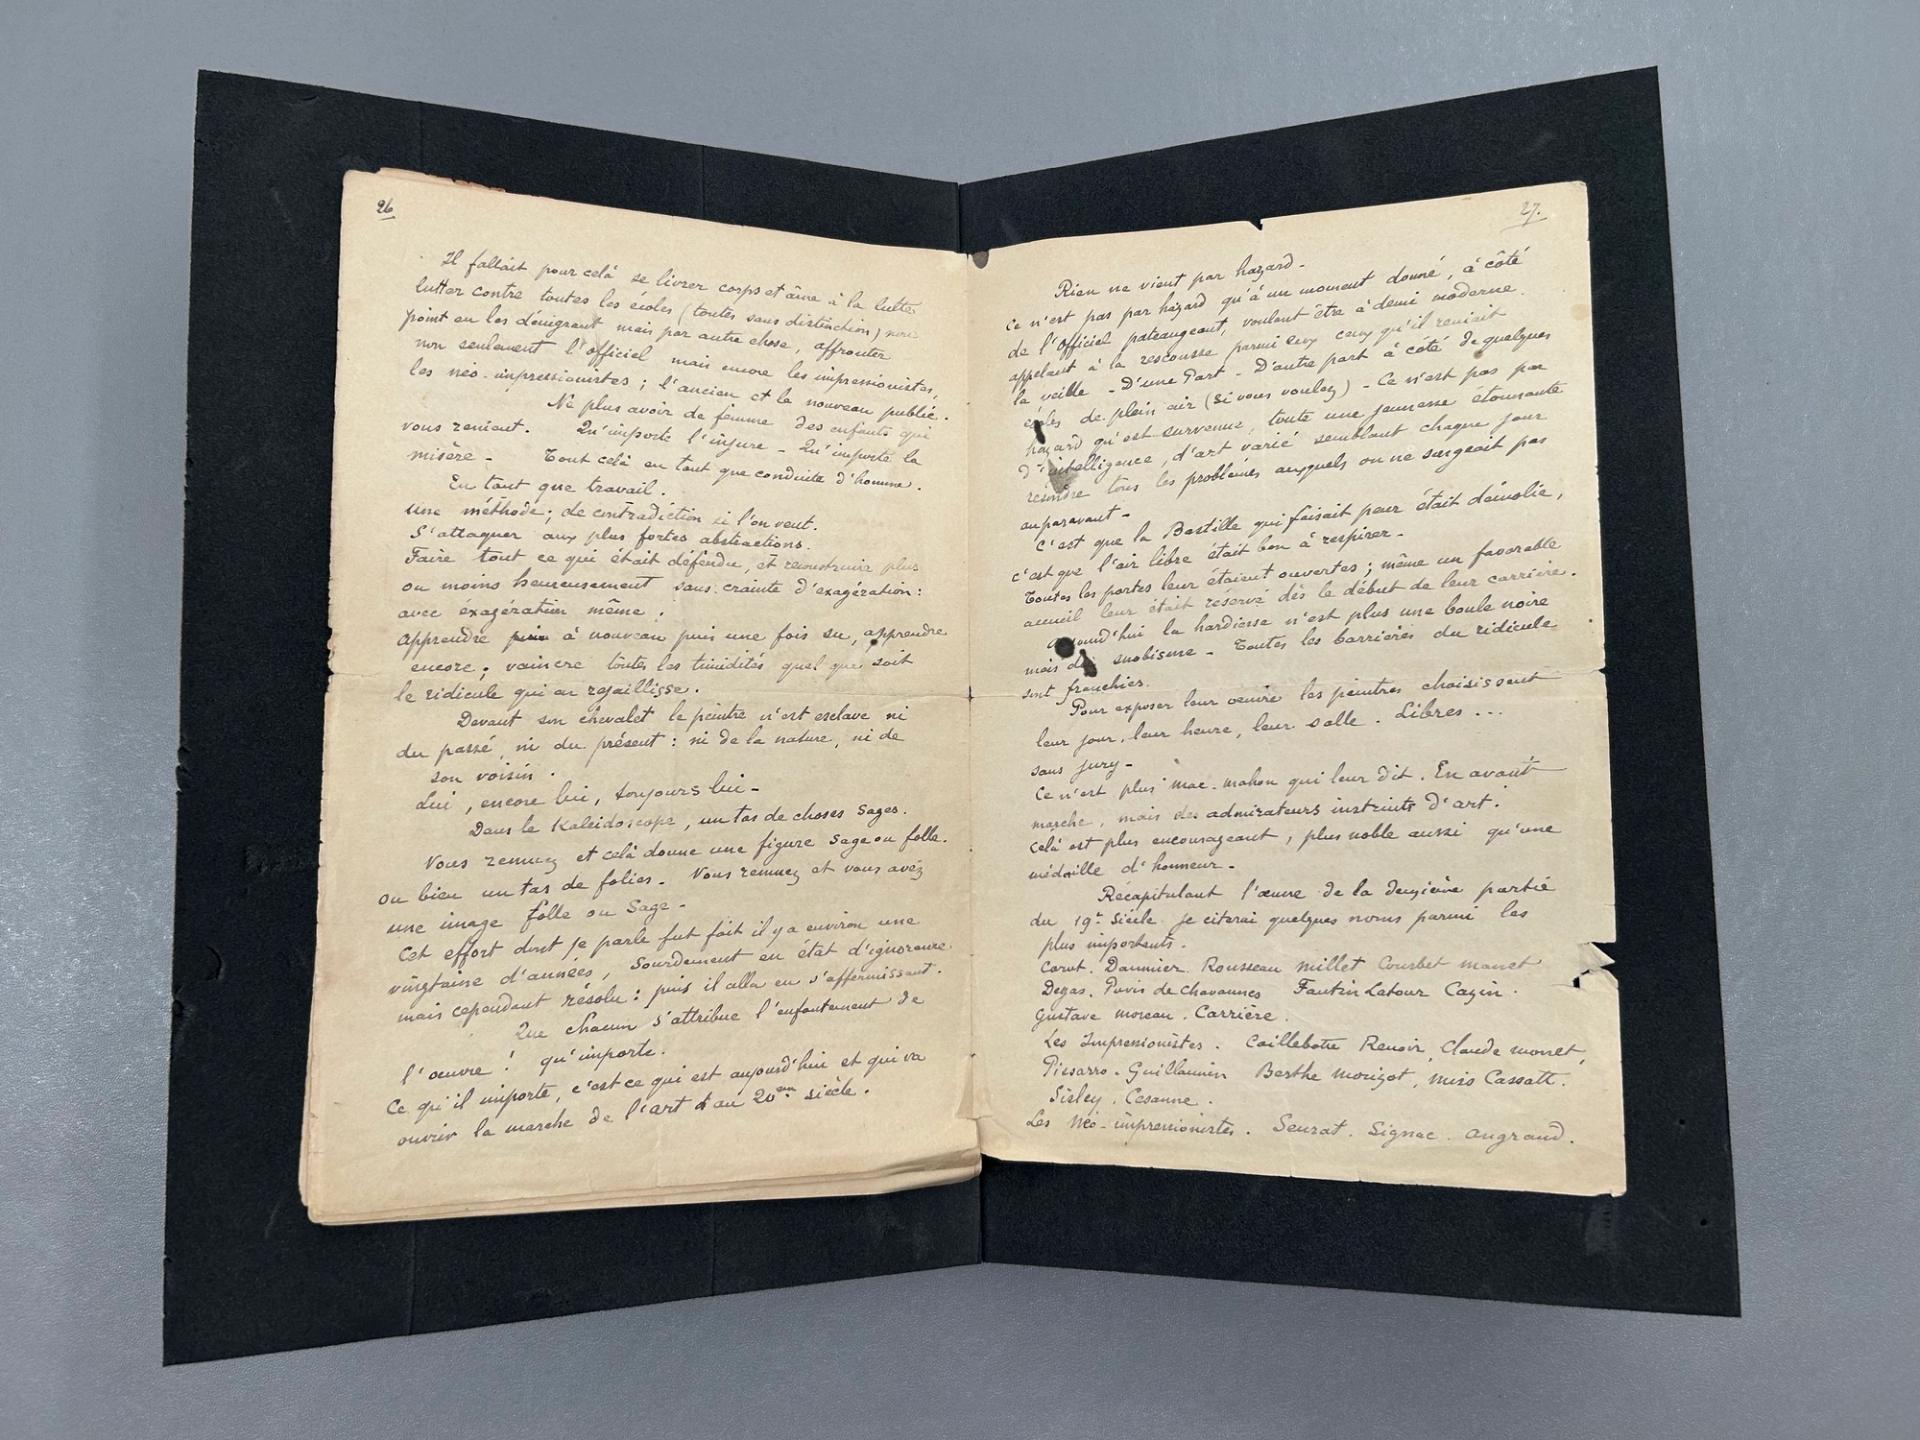 26
Il fallait pour celà se livrer corps et âme à la lutte
lutter contre toutes les écoles (toutes sans distinction) non
point en les dénigrant mais par autre chose, affronter
non seulement l'officiel mais encore les impressionistes,
les néo-impressionistes ; l'ancien et le nouveau public.
Ne plus avoir de femme des enfants qui
vous renient. Qu'importe l'injure - Qu'importe la
misère - Tout celà en tant que conduite d'homme.
En tant que travail.
une méthode ; de contradiction si l'on veut.
S'attaquer aux plus fortes abstractions.
Faire tout ce qui était défendu, et reconstruire plus
ou moins heureusement sans crainte d'exagération :
avec exagération même .
Apprendre à nouveau puis une fois su, apprendre
encore ; vaincre toutes les timidités quel que soit
le ridicule qui en rejaillisse .
Devant son chevalet le peintre n'est esclave ni
du passé, ni du présent : ni de la nature, ni de
son voisin .
Lui , encore lui, toujours lui -
Dans le Kaléidoscope, un tas de choses sages.
Vous remuez et celà donne une figure sage ou folle.
ou bien un tas de folies - Vous remuez et vous avéz
une image folle ou sage -
Cet effort dont je parle fut fait il y a environ une
vingtaine d'années, sourdement en état d'ignorance
mais cependant résolu : puis il alla en s'affermissant .
Que chacun s'attribue l'enfantement de
l'œuvre ! qu'importe.
Ce qu'il importe, c'est ce qui est aujourd'hui et qui va
ouvrir la marche de l'art au 20em siècle .
27.
Rien ne vient par hazard -
Ce n'est pas par hazard qu'à un moment donné, à côté
de l'officiel pataugeant, voulant être à demi moderne
appelant à la rescousse parmi eux ceux qu'il reniait
la veille - D'une Part - D'autre part à côté de quelques
écoles de plein air (si vous voulez) - Ce n'est pas par
hazard qu'est survenue, toute une jeunesse étonnante
d'intelligence, d'art varié semblant chaque jour
résoudre tous les problèmes auxquels on ne songeait pas
auparavant -
C'est que la Bastille qui faisait peur était démolie,
c'est que l'air libre était bon à respirer -
Toutes les portes leur étaient ouvertes ; même un favorable
accueil leur était réservé dès le début de leur carrière .
Aujourd'hui la hardiesse n'est plus une boule noire
mais du snobisme - Toutes les barrières du ridicule
sont franchies.
Pour exposer leur œuvre les peintres choisissent
leur jour, leur heure, leur salle . Libres ...
sans jury -
Ce n'est plus mac-mahon qui leur dit . En avant
marche, mais des admirateurs instruits d'art .
Celà est plus encourageant, plus noble aussi qu'une
médaille d'honneur -
Récapitulant l'œuvre de la deuxième partie
du 19e Siècle je citerai quelques noms parmi les
plus importants .
Corot . Daumier . Rousseau Millet Courbet manet
Degas . Puvis de Chavannes Fantin Latour Cazin .
Gustave moreau . Carrière .
Les Impressionistes . Caillebotte Renoir, Claude monet,
Pissarro - Guillaumin Berthe morizot, miss Cassatt .
Sisley . Cesanne .
Les Néo-impressionistes . Seurat . Signac . Angrand .